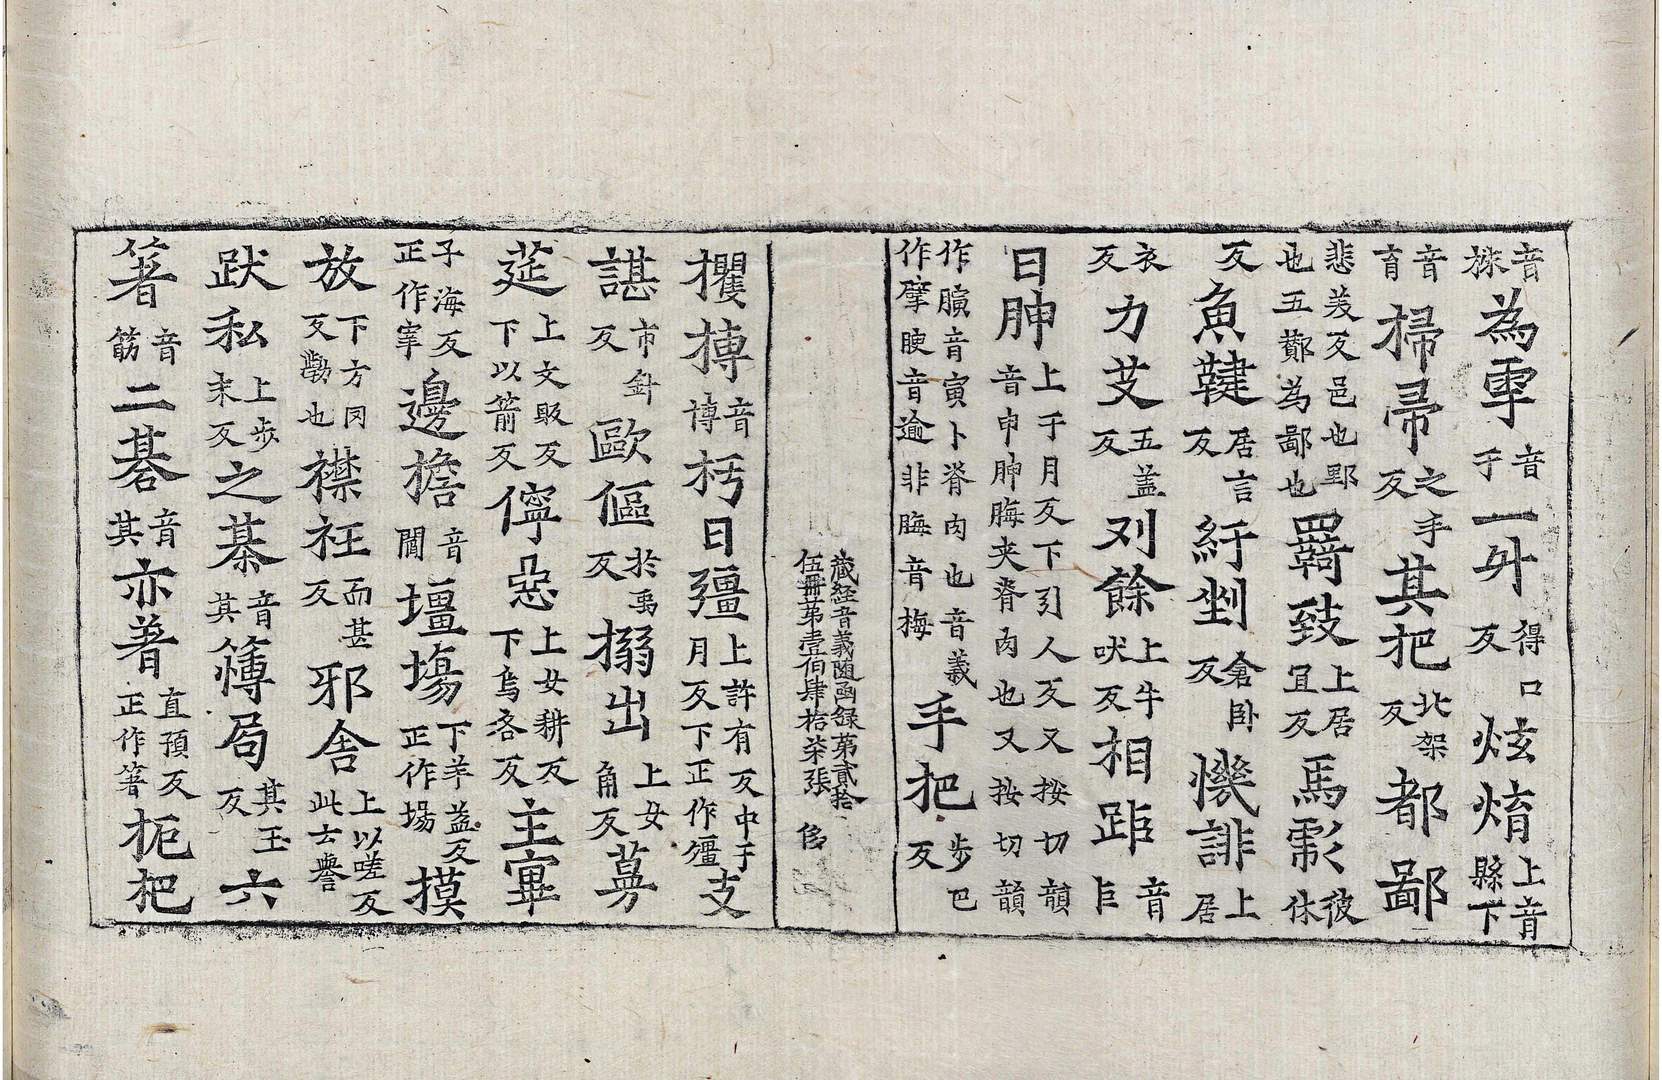 音株為雩音于一㪷得口反炫焴上音縣下
音育掃帚之手反其把北架反都鄙
悲美反邑也郢也五酇為鄙也羇致上居宜反馬彪彼休
反魚鞬居言反紆剉倉卧反懱誹上居
衣反力艾五盖反刈餘上牛吠反相距音巨
日胂上于月反下引人反又按切韻音申胂脢夹脊肉也又按切韻
作䐵音寅卜脊肉也音義作擵腴音逾非脢音梅手把步巴反
藏經音義随函録第貳拾伍冊第壹伯肆拾柒張
攫摶音博杇日彊上許有反中于月反下正作疆支
諶市針反歐傴於禹反搦出上女角反蒡
莚上文取反下以箭反儜惡上女耕反下烏洛反主宰
子海反正作宰邊檐音閻壇場下羊益反正作埸摸
放下方罔反斆也襟衽而甚反邪舍上以嗟反此云譽
跋私上步末反之棊音其簙局其玉反六
箸音筋二碁音其亦著直預反正作箸柂把